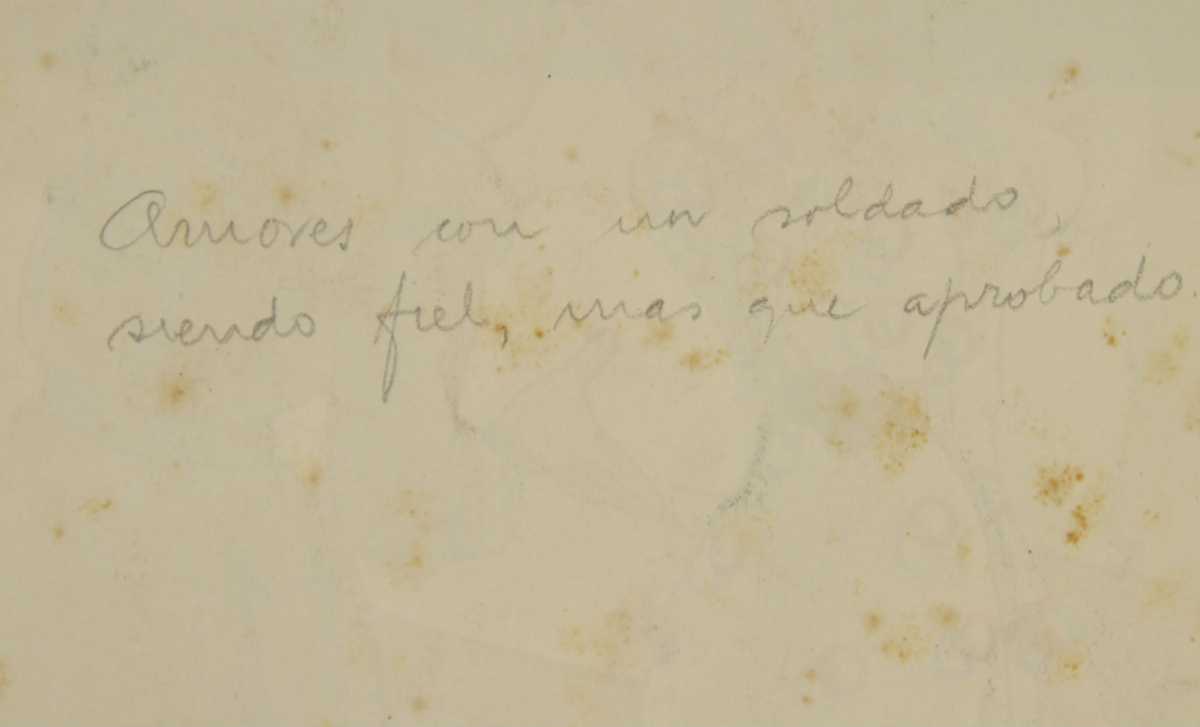 Amores con un soldado,
siendo fiel, mas que aprobado.